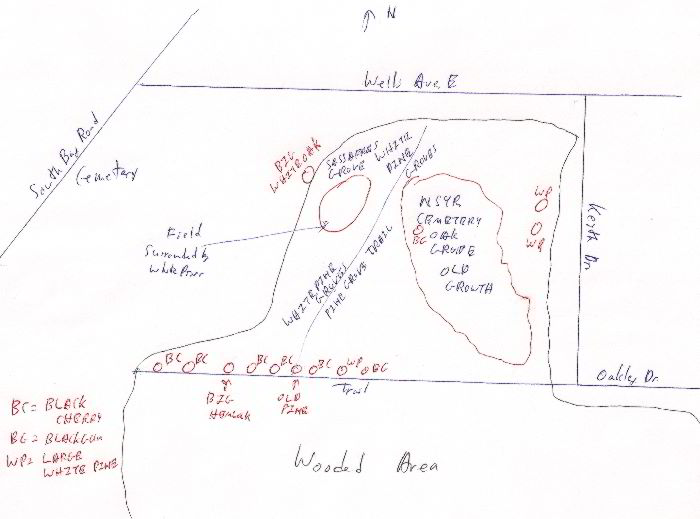 ↑ N
Wells Ave. E
South Bay Road
Cemetery
BIG
WHITE OAK
SASSAFRAS
GROVE
WHITE
PINE
GROVES
NSYR
CEMETERY
OAK
BG
GROVE
OLD
GROWTH
WP
WP
Kerth Dr.
Field
Surrounded by
White Pines
WHITE PINE
GROVES
PINE GROVE TRAIL
BC
BC
BC
BC
BC
WP
BG
Trail
Oakley Dr.
BIG
HEMLOCK
OLD
PINE
BC = BLACK
CHERRY
BG = BLACKGUM
WP = LARGE
WHITE PINE
Wooded Area